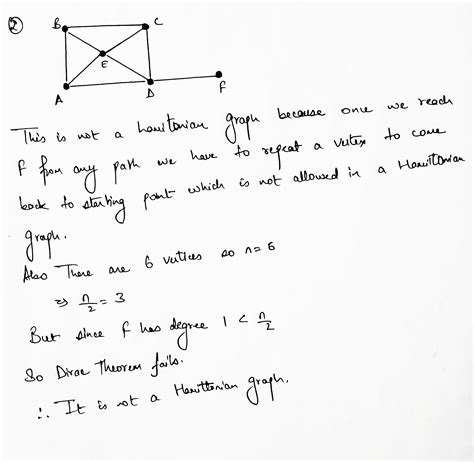 ②
B C
E
A D F
This is not a Hamiltonian graph because once we reach
F from any path we have to repeat a vertex to come
back to starting point which is not allowed in a Hamiltonian
graph.
Also There are 6 vertices so n=6
⇒ n/2 = 3
But since F has degree 1 < n/2
So Dirac Theorem fails.
∴ It is not a Hamiltonian graph.